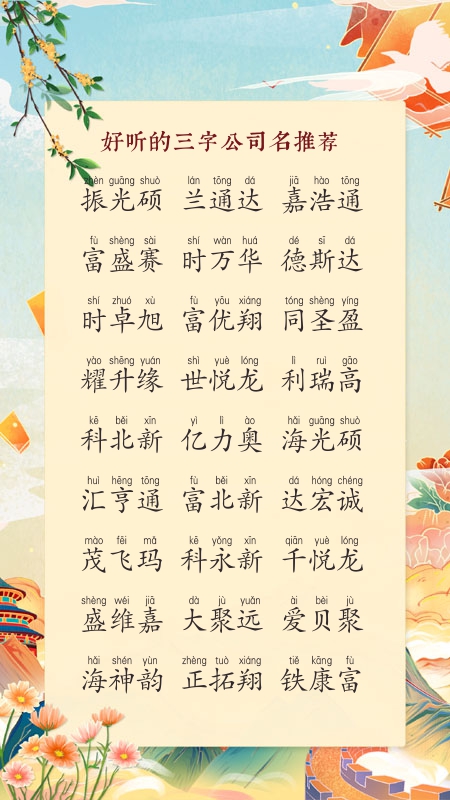 好听的三字公司名推荐
zhèn guāng shuò lán tōng dá jiā hào tōng
振光硕 兰通达 嘉浩通
fù shèng sài shí wàn huá dé sī dá
富盛赛 时万华 德斯达
shí zhuó xù fù yōu xiáng tóng shèng yíng
时卓旭 富优翔 同圣盈
yào shēng yuán shì yuè lóng lì ruì gāo
耀升缘 世悦龙 利瑞高
kē běi xīn yì lì ào hǎi guāng shuò
科北新 亿力奥 海光硕
huì hēng tōng fù běi xīn dá hóng chéng
汇亨通 富北新 达宏诚
mào fēi mǎ kē yǒng xīn qiān yuè lóng
茂飞玛 科永新 千悦龙
shèng wéi jiā dà jù yuǎn ài bèi jù
盛维嘉 大聚远 爱贝聚
hǎi shén yùn zhèng tuò xiáng tiě kāng fù
海神韵 正拓翔 铁康富